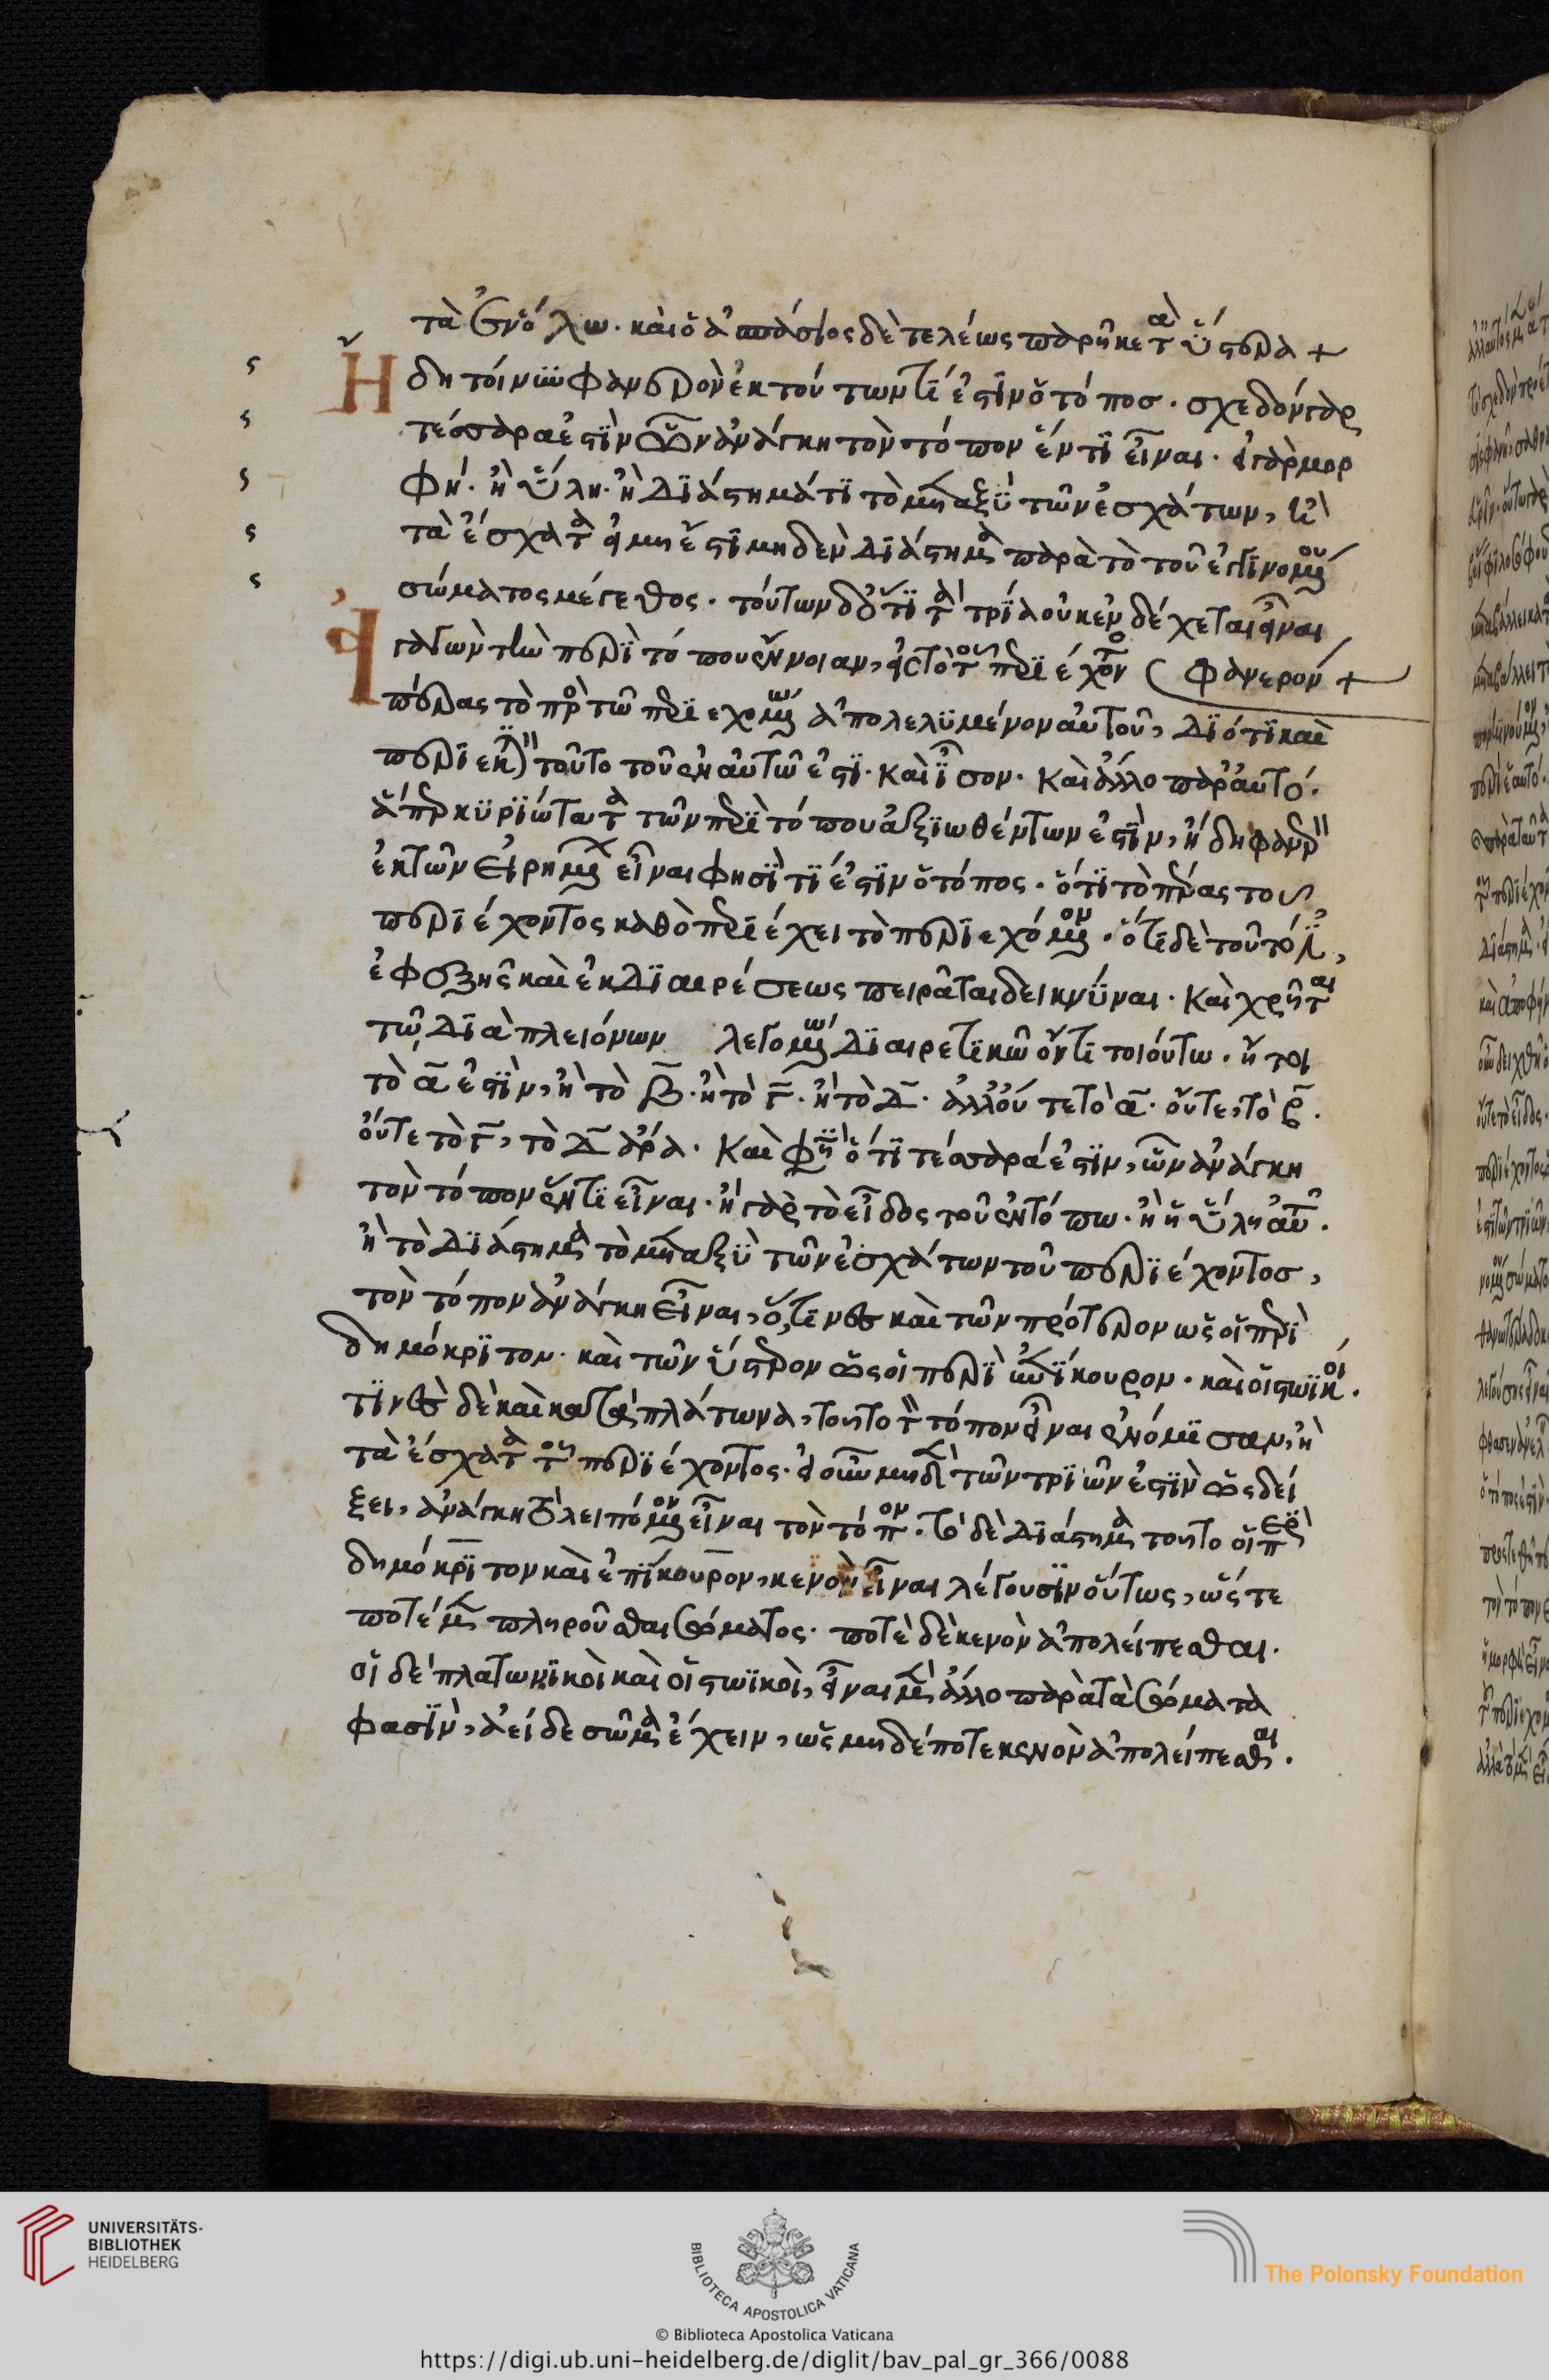 τὰ ἐν ὅλω. καὶ ὁ ἀσπάσιος δὲ τελέως παρῆκε ταὶ ὕστερα +
Ἤδη τοίνυν φανερὸν ἐκ τούτων τί ἐστιν ὁ τόπος. σχεδὸν γὰρ
τέσσαρα ἐστὶν ὧν ἀνάγκη τὸν τόπον ἕν τι εἶναι. ἢ γὰρ μορ
φὴ. ἢ ὕλη. ἢ διάστημά τι τὸ μεταξὺ τῶν ἐσχάτων, ἢ
τὰ ἔσχατα εἰ μὴ ἔστι μηδὲν διάστημα παρὰ τὸ τοῦ ἐγγινομένου
σώματος μέγεθος. τούτων δ' ὅτι τὰ τρία οὐκ ἐνδέχεται εἶναι
φανερόν +
Εἰσαγαγὼν τὴν περὶ τόπου ἔννοιαν, εἰς τὸ τοῦ περιέχοντος
πέρας τὸ πρὸς τῶ περιεχομένω ἀπολελυμένον αὐτοῦ, διότι καὶ
περιεκτικὸν τοῦτο τοῦ ἐν αὐτῶ ἐστι. καὶ ἴσον. καὶ ἄλλο παρ' αὐτό.
ἅπερ κυριώτατα τῶν περὶ τόπου ἀξιωθέντων ἐστὶν, ἤδη φανερὸν
ἐκ τῶν εἰρημένων εἶναι φησὶ τί ἐστιν ὁ τόπος. ὅτι τὸ πέρας τοῦ
περιέχοντος καθὸ περιέχει τὸ περιεχόμενον. ὅτι δὲ τοῦτό ἐστιν,
ἐφεξῆς καὶ ἐκ διαιρέσεως πειρᾶται δεικνύναι. καὶ χρῆται
τῶ διὰ πλειόνων λεγομένω διαιρετικῶ ὄντι τοιούτω. ἤτοι
τὸ α ἐστὶν, ἢ τὸ β. ἢ τὸ γ. ἢ τὸ δ. ἀλλ' οὔτε τὸ α. οὔτε τὸ β.
οὔτε τὸ γ, τὸ δ ἄρα. καὶ φησὶν ὅτι τέσσαρά ἐστιν, ὧν ἀνάγκη
τὸν τόπον ἕν τι εἶναι. ἢ γὰρ τὸ εἶδος τοῦ ἐν τόπω. ἢ ἡ ὕλη αὐτοῦ.
ἢ τὸ διάστημα τὸ μεταξὺ τῶν ἐσχάτων τοῦ περιέχοντος,
τὸν τόπον ἀνάγκη εἶναι, ὅ τινες καὶ τῶν πρότερον ὡς οἱ περὶ
δημόκριτον. καὶ τῶν ὕστερον ὡς οἱ περὶ ἐπίκουρον. καὶ οἱ στωικοί.
τινὲς δὲ καὶ κατὰ πλάτωνα, τοῦτο τὸν τόπον εἶναι ἐνόμισαν, ἢ
τὰ ἔσχατα τοῦ περιέχοντος. εἰ οὖν μηδὲν τῶν τριῶν ἐστὶν ὡς δεί
ξει, ἀνάγκη τὸ λειπόμενον εἶναι τὸν τόπον. τὸ δὲ διάστημα τοῦτο οἱ περὶ
δημόκριτον καὶ ἐπίκουρον, κενὸν εἶναι λέγουσιν οὕτως, ὥστε
ποτὲ μὲν πληροῦσθαι σώματος. ποτὲ δὲ κενὸν ἀπολείπεσθαι.
οἱ δὲ πλατωνικοὶ καὶ οἱ στωικοὶ, εἶναι μὲν ἄλλο παρὰ τὰ σώματα
φασὶν, ἀεὶ δὲ σῶμα ἔχειν, ὡς μηδέποτε κενὸν ἀπολείπεσθαι.
UNIVERSITÄTS-
BIBLIOTHEK
HEIDELBERG
BIBLIOTECA APOSTOLICA VATICANA
The Polonsky Foundation
© Biblioteca Apostolica Vaticana
https://digi.ub.uni-heidelberg.de/diglit/bav_pal_gr_366/0088